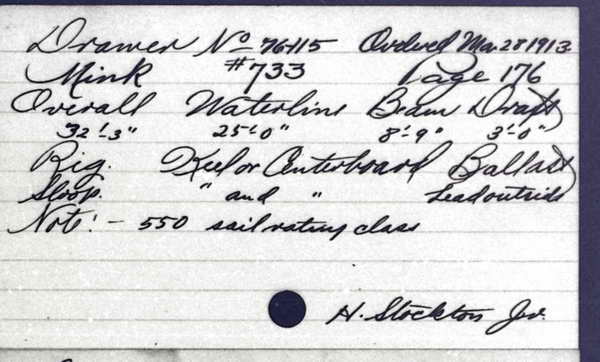 Drawer No 76-115 Ordered Mar 28 1913
Mink #733 Page 176
Overall Waterline Beam Draft
32'-3" 25'-0" 8'-9" 3'-0"
Rig. Keel or Centerboard Ballast
Sloop. " and " Lead outside
Note: - 550 sail rating class
H. Stockton Jr.